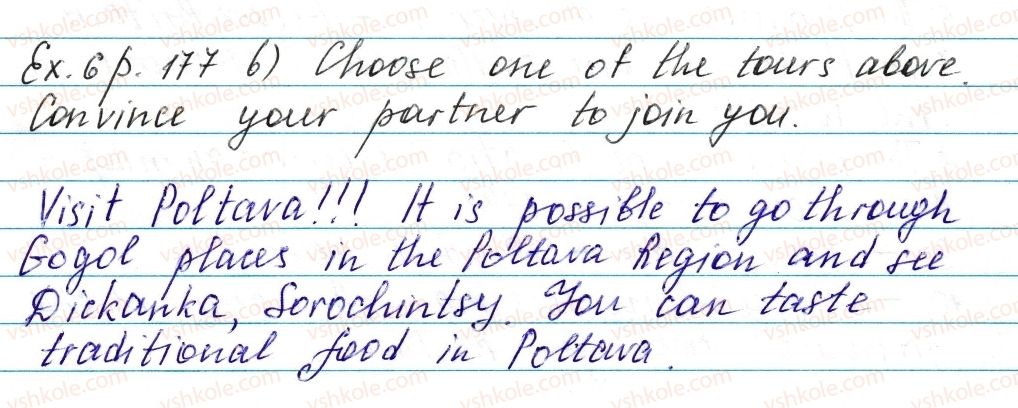 Ex. 6 p. 177 b) Choose one of the tours above.
Convince your partner to join you.
Visit Poltava!!! It is possible to go through
Gogol places in the Poltava Region and see
Dickanka, Sorochintsy. You can taste
traditional food in Poltava.